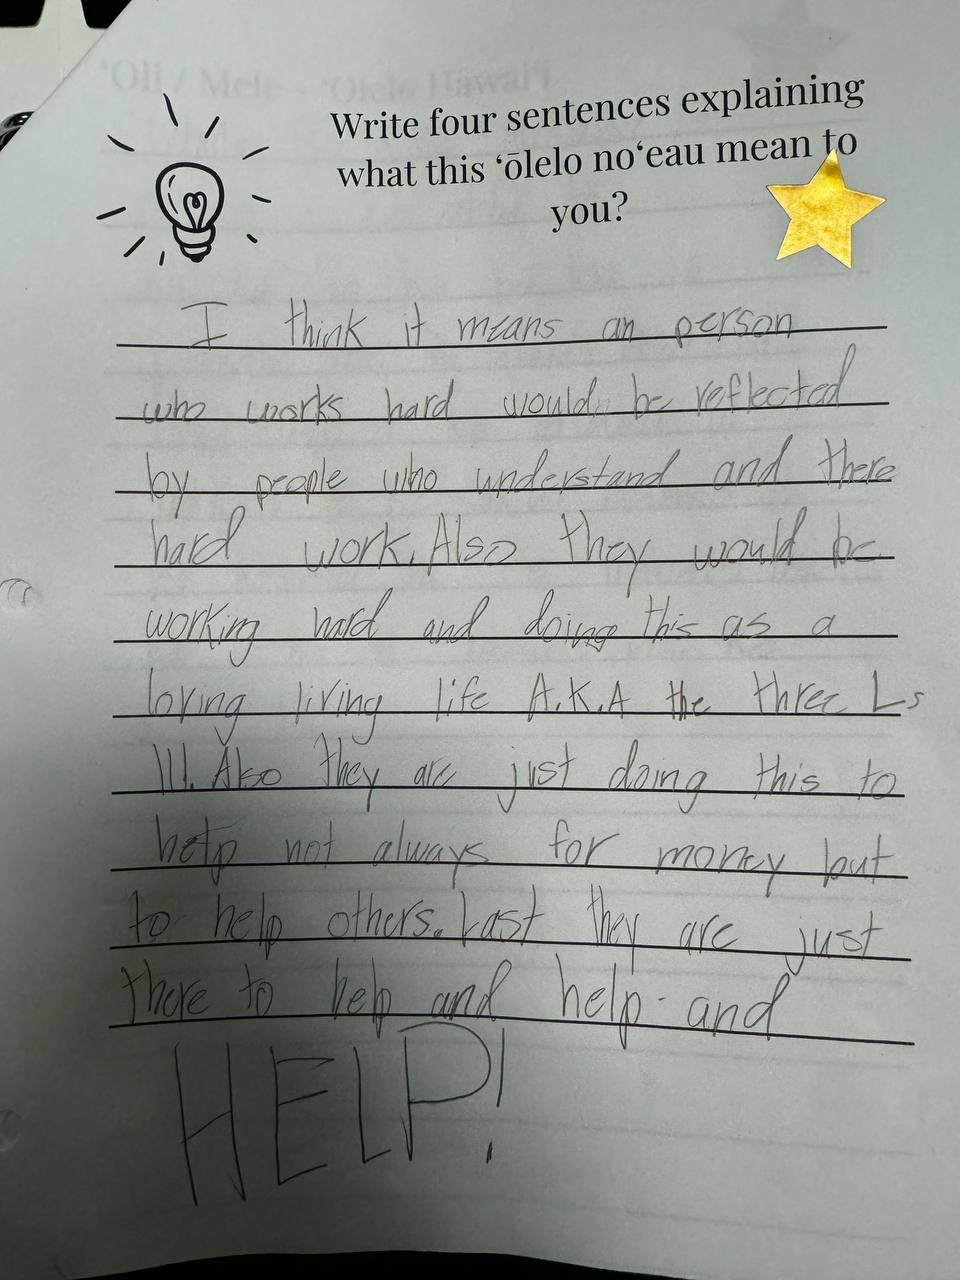 Write four sentences explaining
what this ʻōlelo noʻeau mean to
you?
I think it means an person
who works hard would be reflected
by people who understand and there
hard work. Also they would be
working hard and doing this as a
loving living life A.K.A the three Ls
lll. Also they are just doing this to
help not always for money but
to help others. Last they are just
there to help and help and
HELP!